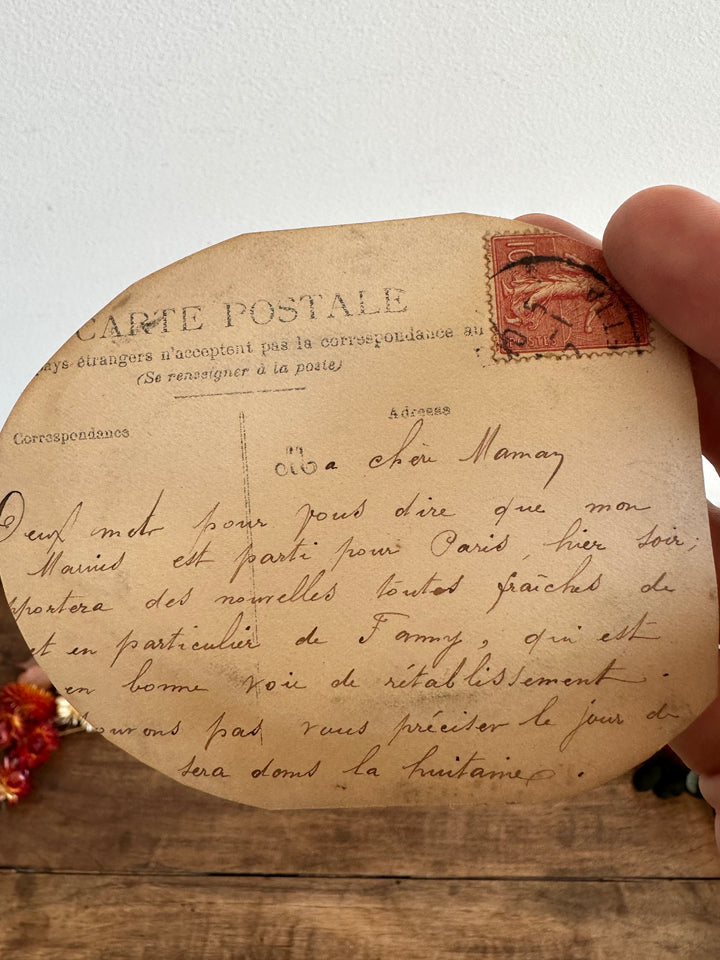 CARTE POSTALE
pays étrangers n'acceptent pas la correspondance au
(Se renseigner à la poste)
Correspondance
Adresse
Ma chère Maman
Deux mots pour vous dire que mon
Marius est parti pour Paris, hier soir;
pportera des nouvelles toutes fraîches de
et en particulier de Fanny, qui est
en bonne voie de rétablissement.
ouvons pas vous préciser le jour de
sera dans la huitaine.
10
POSTES